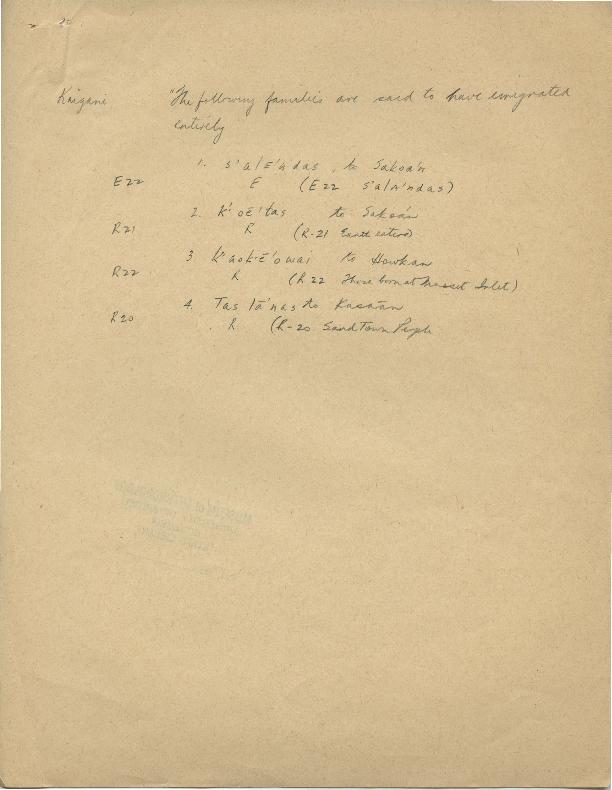 Kaigani "The following families are said to have emigrated
entirely
1. s'alē'ndas, to Sakoān
E22 E (E22 s'alA'ndas)
2. k'·oē'tas to Sakoān
R21 R (R-21 Earth eaters)
3 k'aok·ē'owai to Howkan
R22 R (R22 Those born at Masset Inlet)
4. Tas lā'nas to Kasaān
R20 R (R-20 Sand Town People
MUSEUM of